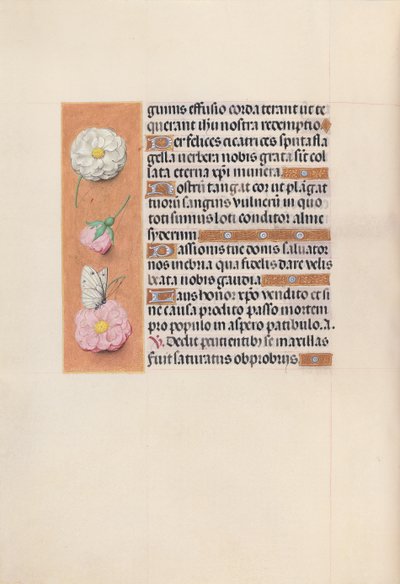 guinis effusio corda terant ut te
querant ihu nostra redemptio
Per felices cicatrices sputa fla
gella verbera nobis grata sint col
lata eterna xpi munera
Nostrũ tangat cor ut plãgat
tuorũ sanguis vulnerũ in quo
toti sumus loti conditor alme
syderum
Passionis tue donis salvator
nos inebria qua fidelis dare velis
beata nobis gaudia
Laus honor xpo vendito et si
ne causa prodito passo mortem
pro populo in aspero patibulo. a.
V. Dedit percutienti se maxillas
fuit saturatus obprobriis